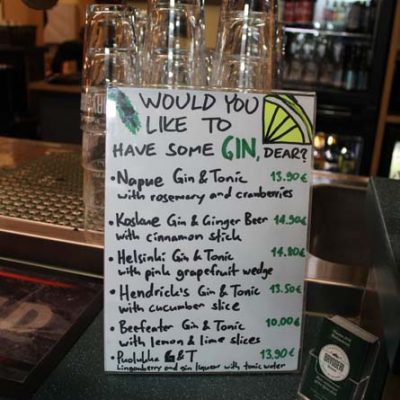 WOULD YOU
LIKE TO
HAVE SOME GIN, DEAR?
• Napue Gin & Tonic 13.90€
with rosemary and cranberries
• Koskue Gin & Ginger Beer 14.90€
with cinnamon stick
• Helsinki Gin & Tonic 14.80€
with pink grapefruit wedge
• Hendrick's Gin & Tonic 13.50€
with cucumber slice
• Beefeater Gin & Tonic 10.00€
with lemon & lime slices
• Puolukka G&T 13.90€
Lingonberry and gin liqueur with tonic water